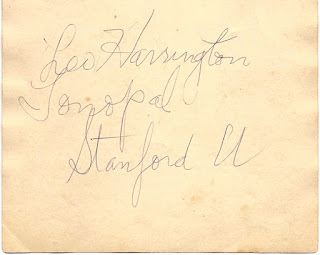 Leo Harrington
Tonopal
Stanford U